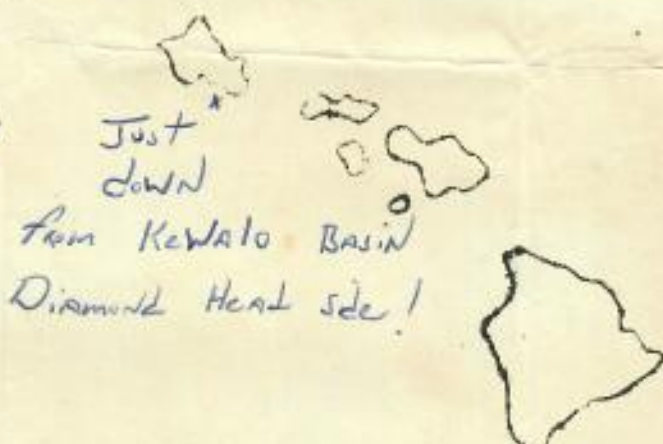 Just
down
from Kewalo Basin
Diamond Head side!